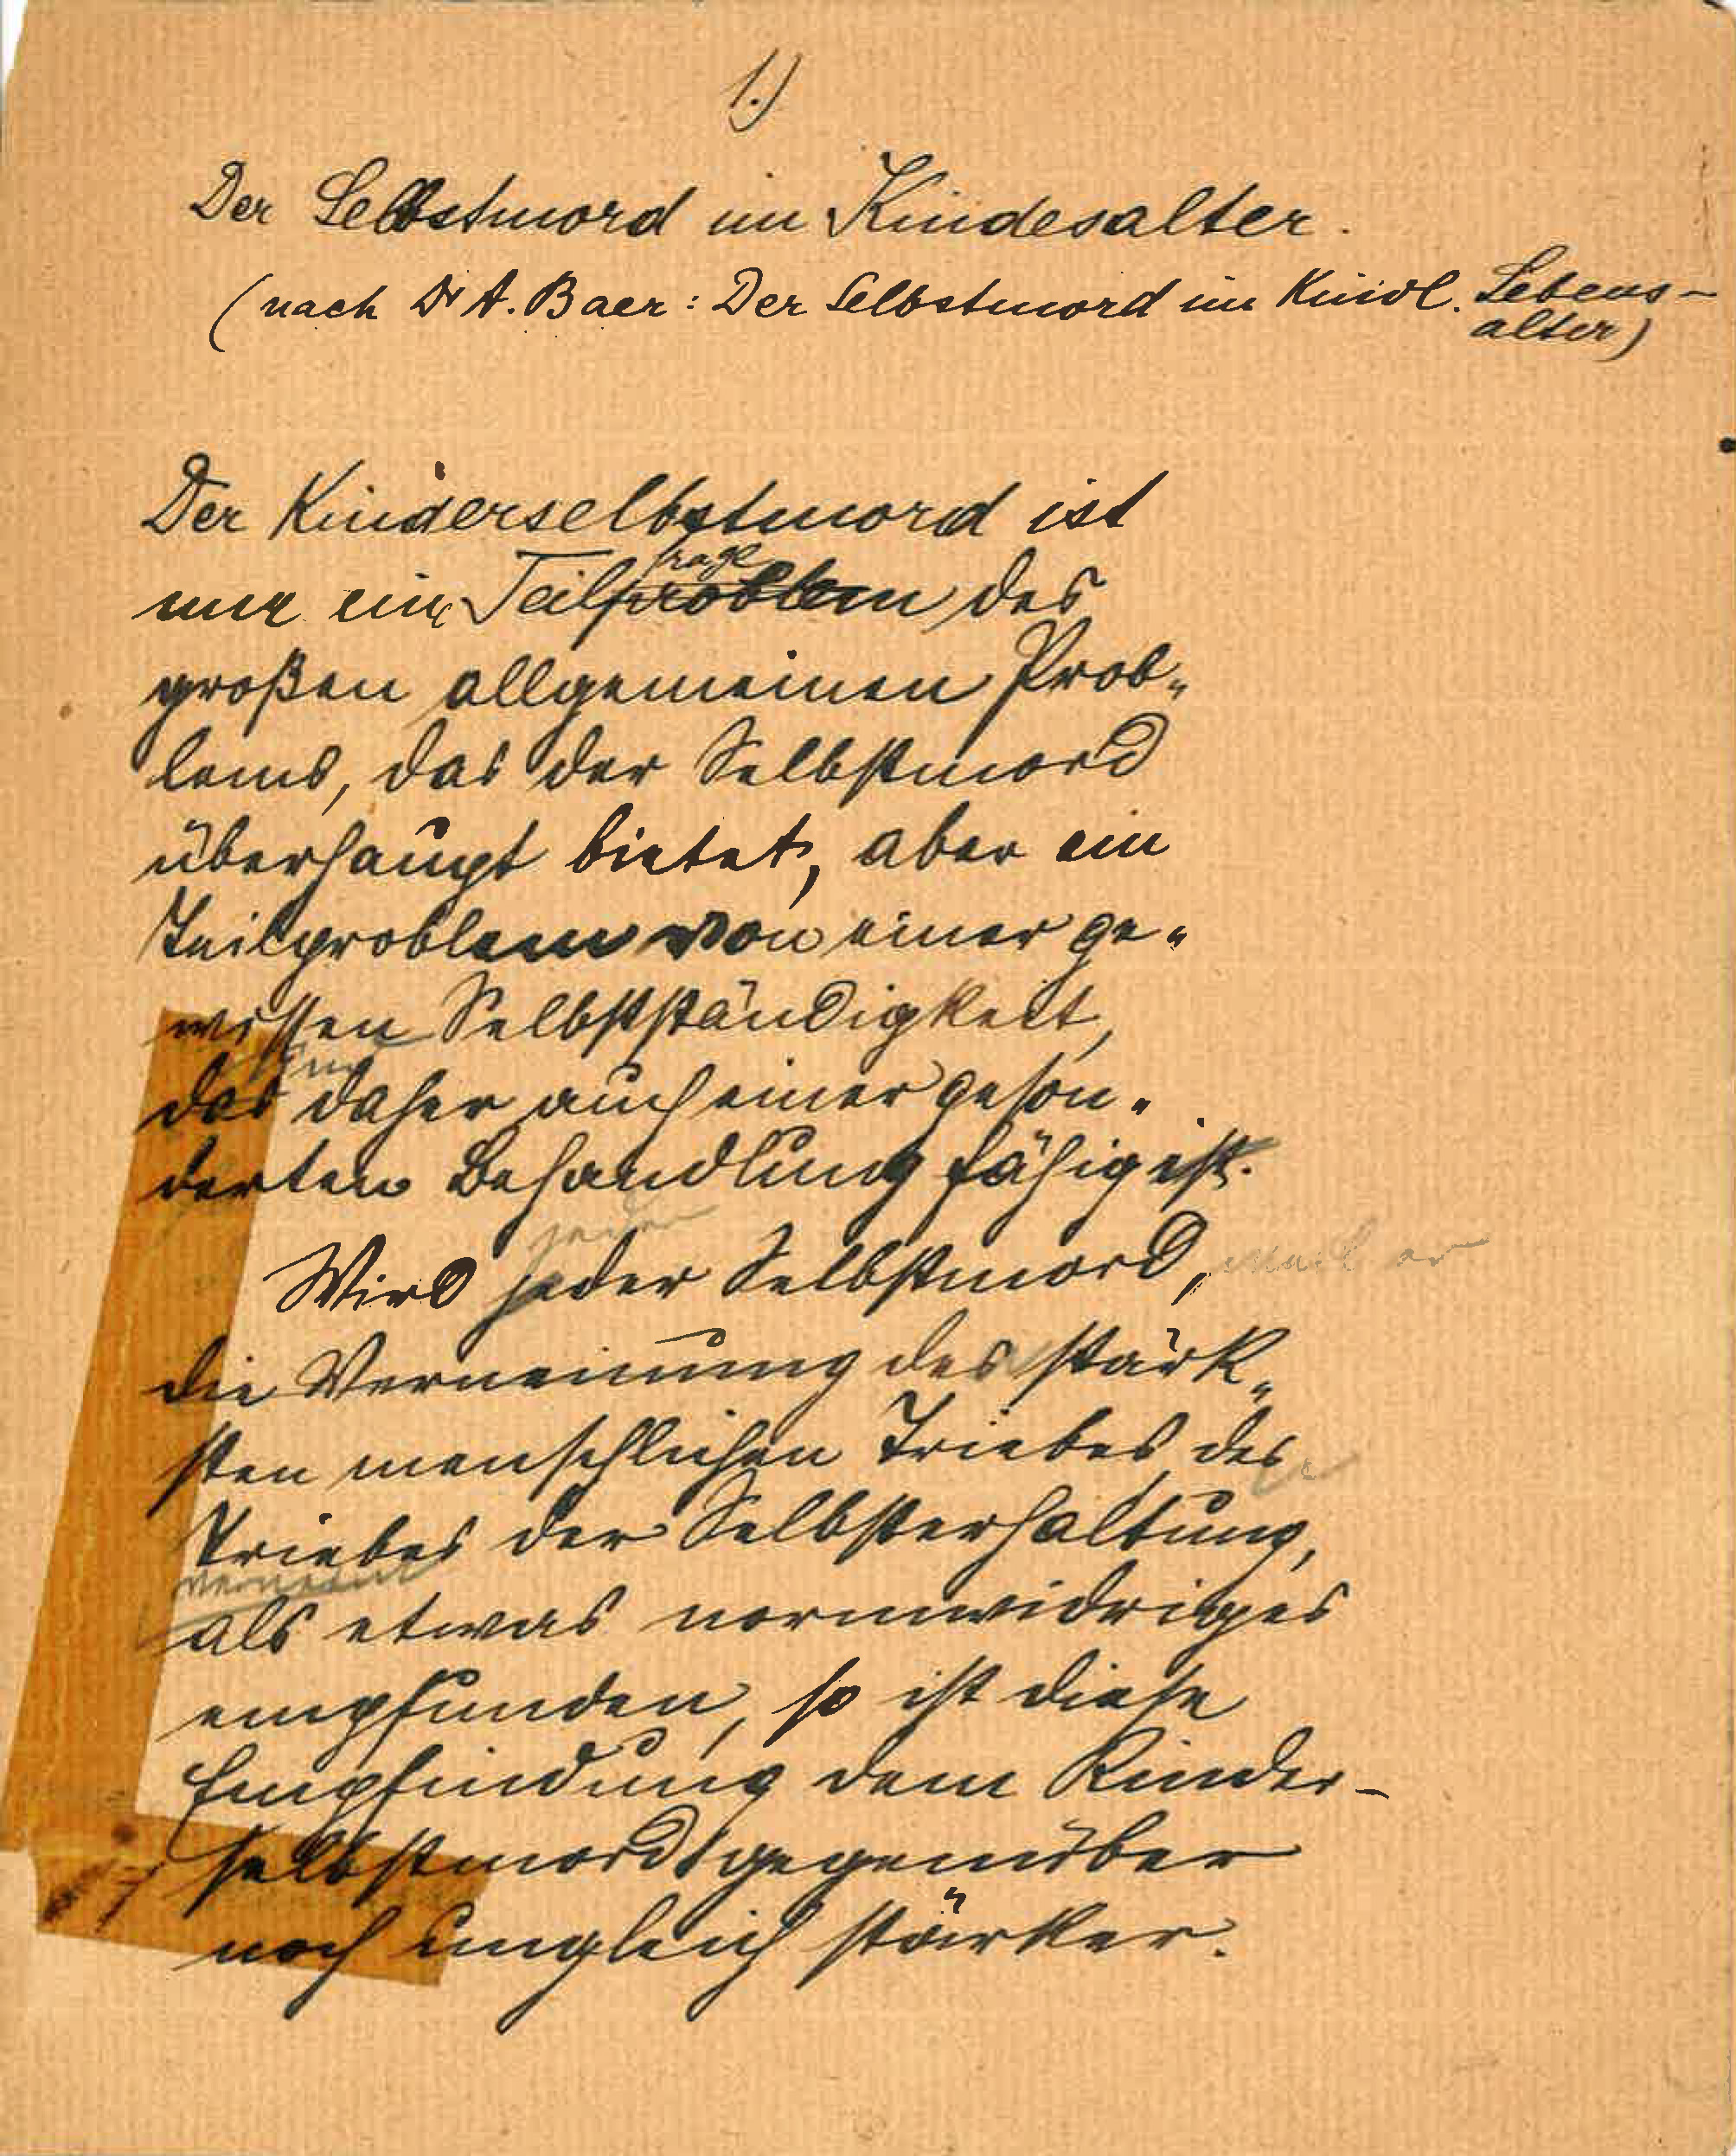 1.)
Der Selbstmord im Kindesalter.
(nach Dr A. Baer: Der Selbstmord im Kindl. Lebens-
alter)
Der Kinderselbstmord ist
frage
nur eine Teilproblem des
großen allgemeinen Prob-
lems, das der Selbstmord
überhaupt bietet, aber ein
Teilproblem von einer ge-
wissen Selbstständigkeit,
das daher auch einer geson-
derten Behandlung fähig ist.
jeder
Wird jeder Selbstmord, weil er
die Verneinung des stärk-
sten menschlichen Triebes, des
Triebes der Selbsterhaltung,
verneint
als etwas normwidriges
empfunden, so ist diese
Empfindung dem Kinder-
selbstmord gegenüber
noch ungleich stärker.